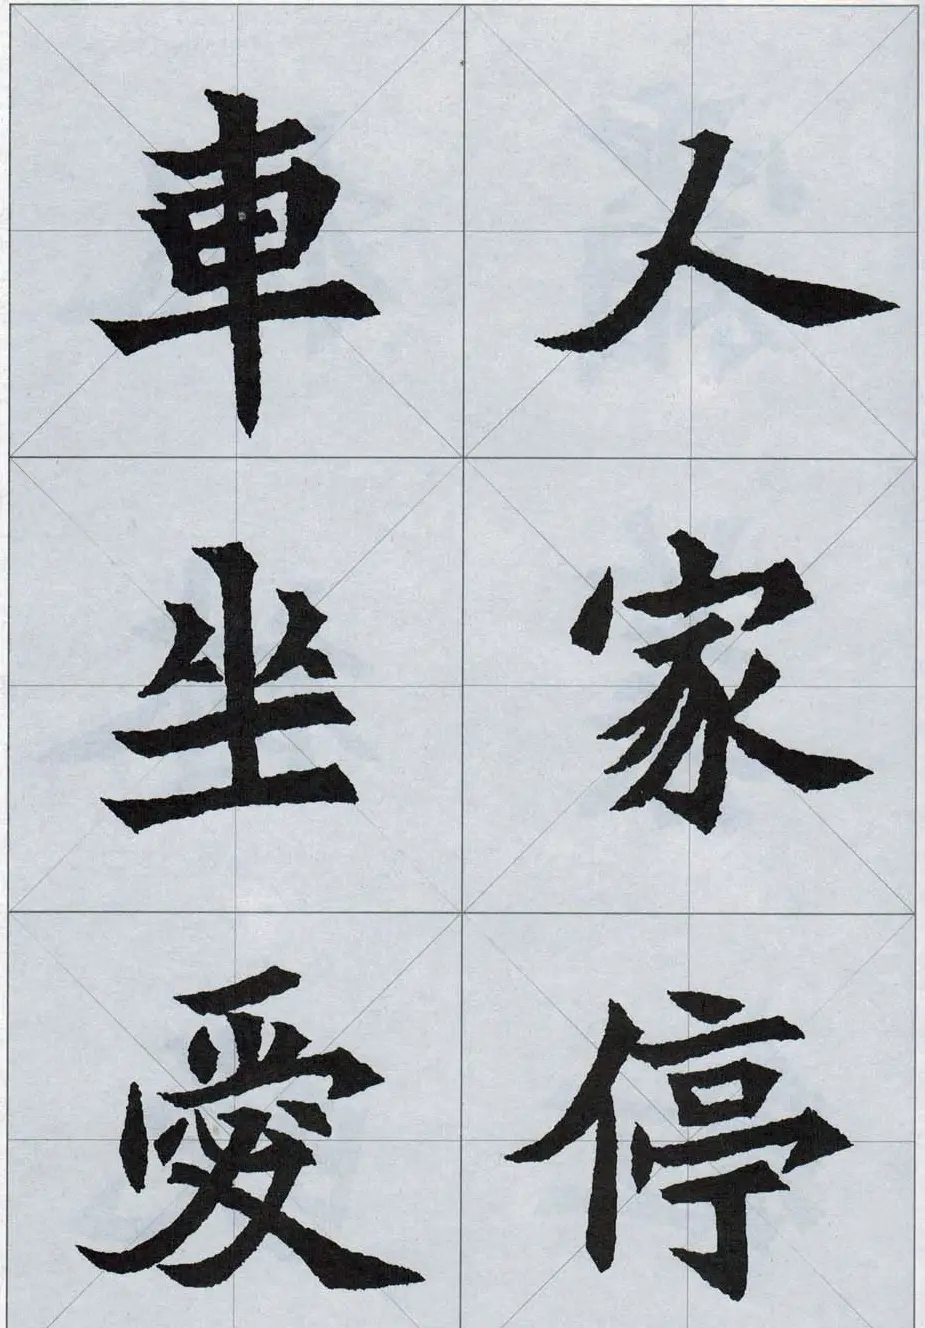 人家停
車坐愛